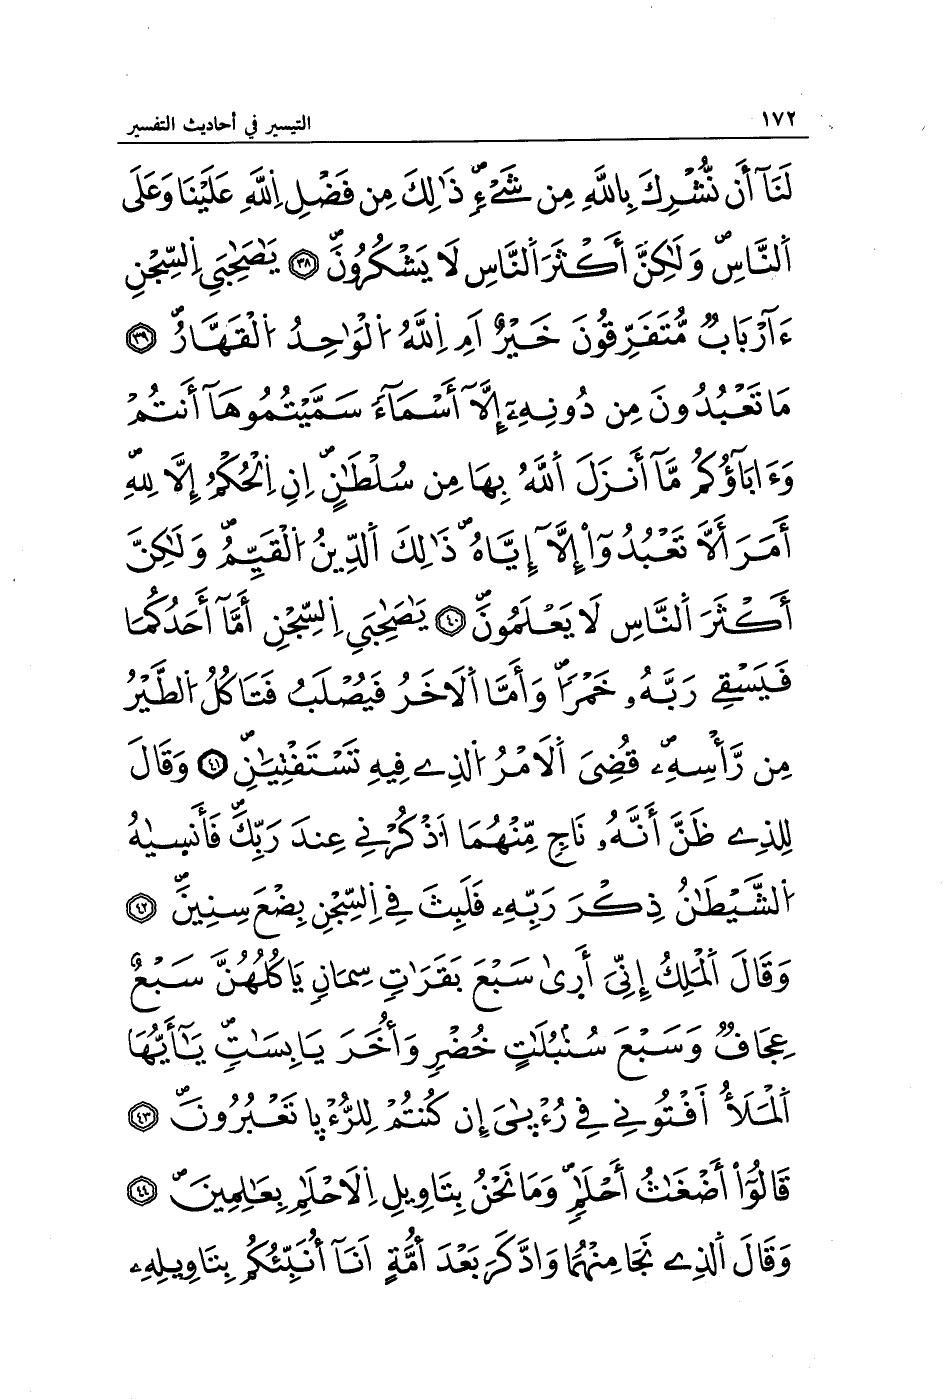 ١٧٢
التيسير في أحاديث التفسير
لَنَآ أَن نُّشْرِكَ بِاللَّهِ مِن شَےْءٍۖ ذَٰلِكَ مِن فَضْلِ اِ۬للَّهِ عَلَيْنَا وَعَلَى
اَ۬لنَّاسِۖ وَلَٰكِنَّ أَكْثَرَ اَ۬لنَّاسِ لَا يَشْكُرُونَۖ ٣٨ يَٰصَٰحِبَيِ اِ۬لسِّجْنِ
ءَآرْبَابٞ مُّتَفَرِّقُونَ خَيْرٌ اَمِ اِ۬للَّهُ اُ۬لْوَٰحِدُ اُ۬لْقَهَّارُۖ ٣٩
مَا تَعْبُدُونَ مِن دُونِهِۦٓ إِلَّآ أَسْمَآءٗ سَمَّيْتُمُوهَآ أَنتُمْ
وَءَابَآؤُكُم مَّآ أَنزَلَ اَ۬للَّهُ بِهَا مِن سُلْطَٰنٍۖ اِنِ اِ۬لْحُكْمُ إِلَّا لِلهِۖ
أَمَرَ أَلَّا تَعْبُدُوٓاْ إِلَّآ إِيَّاهُۖ ذَٰلِكَ اَ۬لدِّينُ اُ۬لْقَيِّمُۖ وَلَٰكِنَّ
أَكْثَرَ اَ۬لنَّاسِ لَا يَعْلَمُونَۖ ٤٠ يَٰصَٰحِبَيِ اِ۬لسِّجْنِ أَمَّآ أَحَدُكُمَا
فَيَسْقِے رَبَّهُۥ خَمْراٗۖ وَأَمَّا اَ۬لَاخَرُ فَيُصْلَبُ فَتَاكُلُ اُ۬لطَّيْرُ
مِن رَّأْسِهِۦۖ قُضِيَ اَ۬لَامْرُ اُ۬لذِے فِيهِ تَسْتَفْتِيَٰنِۖ ٤١ وَقَالَ
لِلذِے ظَنَّ أَنَّهُۥ نَاجٖ مِّنْهُمَا اَ۟ذْكُرْنِے عِندَ رَبِّكَۖ فَأَنس۪يٰهُ
اُ۬لشَّيْطَٰنُ ذِكْرَ رَبِّهِۦ فَلَبِثَ فِے اِ۬لسِّجْنِ بِضْعَ سِنِينَۖ ٤٢
وَقَالَ اَ۬لْمَلِكُ إِنِّيَ أَر۪ىٰ سَبْعَ بَقَرَٰتٖ سِمَانٖ يَاكُلُهُنَّ سَبْعٌ
عِجَافٞ وَسَبْعَ سُنۢبُلَٰتٍ خُضْرٖ وَأُخَرَ يَابِسَٰتٖۖ يَٰٓأَيُّهَا
اَ۬لْمَلَأُ اَ۟فْتُونِے فِے رُءْيٰ۪يَ إِن كُنتُمْ لِلرُّءْي۪ا تَعْبُرُونَۖ ٤٣
قَالُوٓاْ أَضْغَٰثُ أَحْلَٰمٖۖ وَمَا نَحْنُ بِتَاوِيلِ اِ۬لَاحْلَٰمِ بِعَٰلِمِينَۖ ٤٤
وَقَالَ اَ۬لذِے نَجَا مِنْهُمَا وَادَّكَرَ بَعْدَ أُمَّةٍ اَنَآ أُنَبِّئُكُم بِتَاوِيلِهِۦ